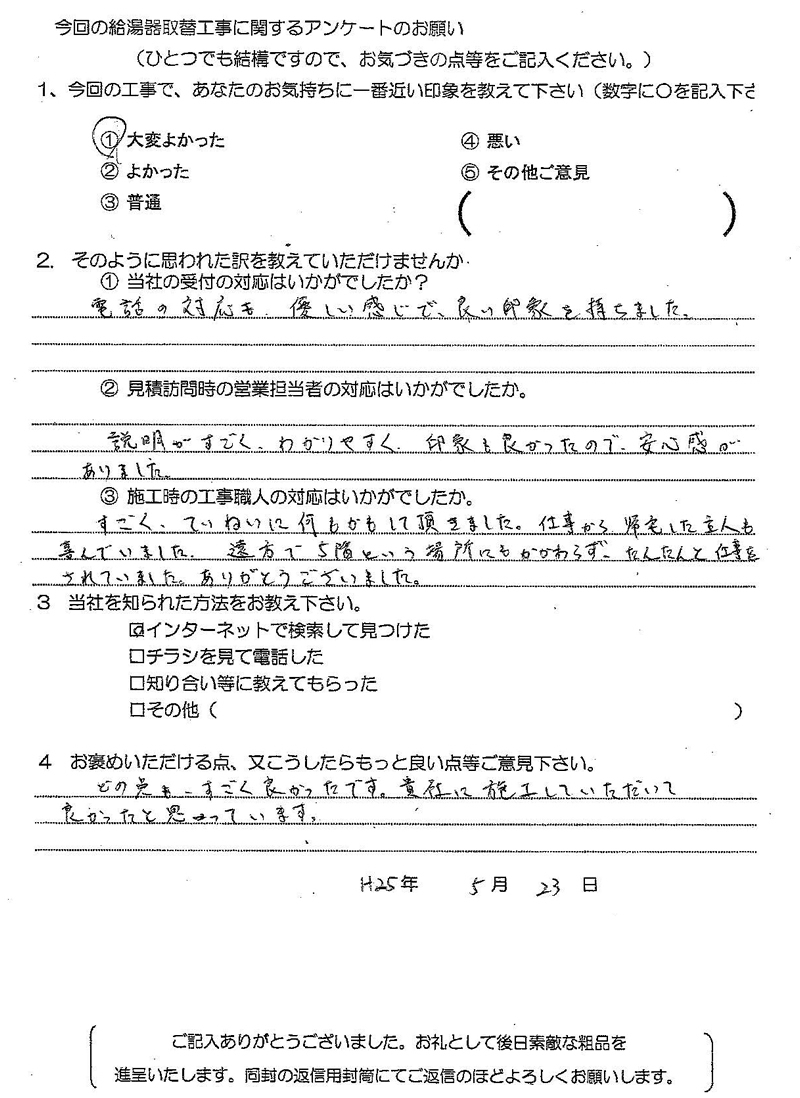 今回の給湯器取替工事に関するアンケートのお願い
（ひとつでも結構ですので、お気づきの点等をご記入ください。）
1、今回の工事で、あなたのお気持ちに一番近い印象を教えて下さい（数字に〇を記入下さ
① 大変よかった
② よかった
③ 普通
④ 悪い
⑤ その他ご意見
（ ）
2. そのように思われた訳を教えていただけませんか
① 当社の受付の対応はいかがでしたか？
電話の対応も、優しい感じで、良い印象を持ちました。
② 見積訪問時の営業担当者の対応はいかがでしたか。
説明がすごく、わかりやすく、印象も良かったので、安心感が
ありました。
③ 施工時の工事職人の対応はいかがでしたか。
すごく、ていねいに何もかもして頂きました。仕事から帰宅した主人も
喜んでいました。遠方で5階という場所にもかかわらず、たんたんと仕事を
されていました。ありがとうございました。
3 当社を知られた方法をお教え下さい。
☑インターネットで検索して見つけた
□チラシを見て電話した
□知り合い等に教えてもらった
□その他（ ）
4 お褒めいただける点、又こうしたらもっと良い点等ご意見下さい。
どの点も、すごく良かったです。貴社に施工していただいて
良かったと思っています。
H25年 5月 23日
ご記入ありがとうございました。お礼として後日素敵な粗品を
進呈いたします。同封の返信用封筒にてご返信のほどよろしくお願いします。